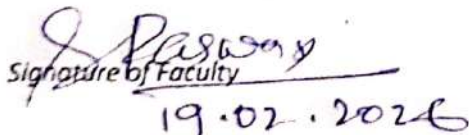 Paswan
Signature of Faculty
19.02.2026